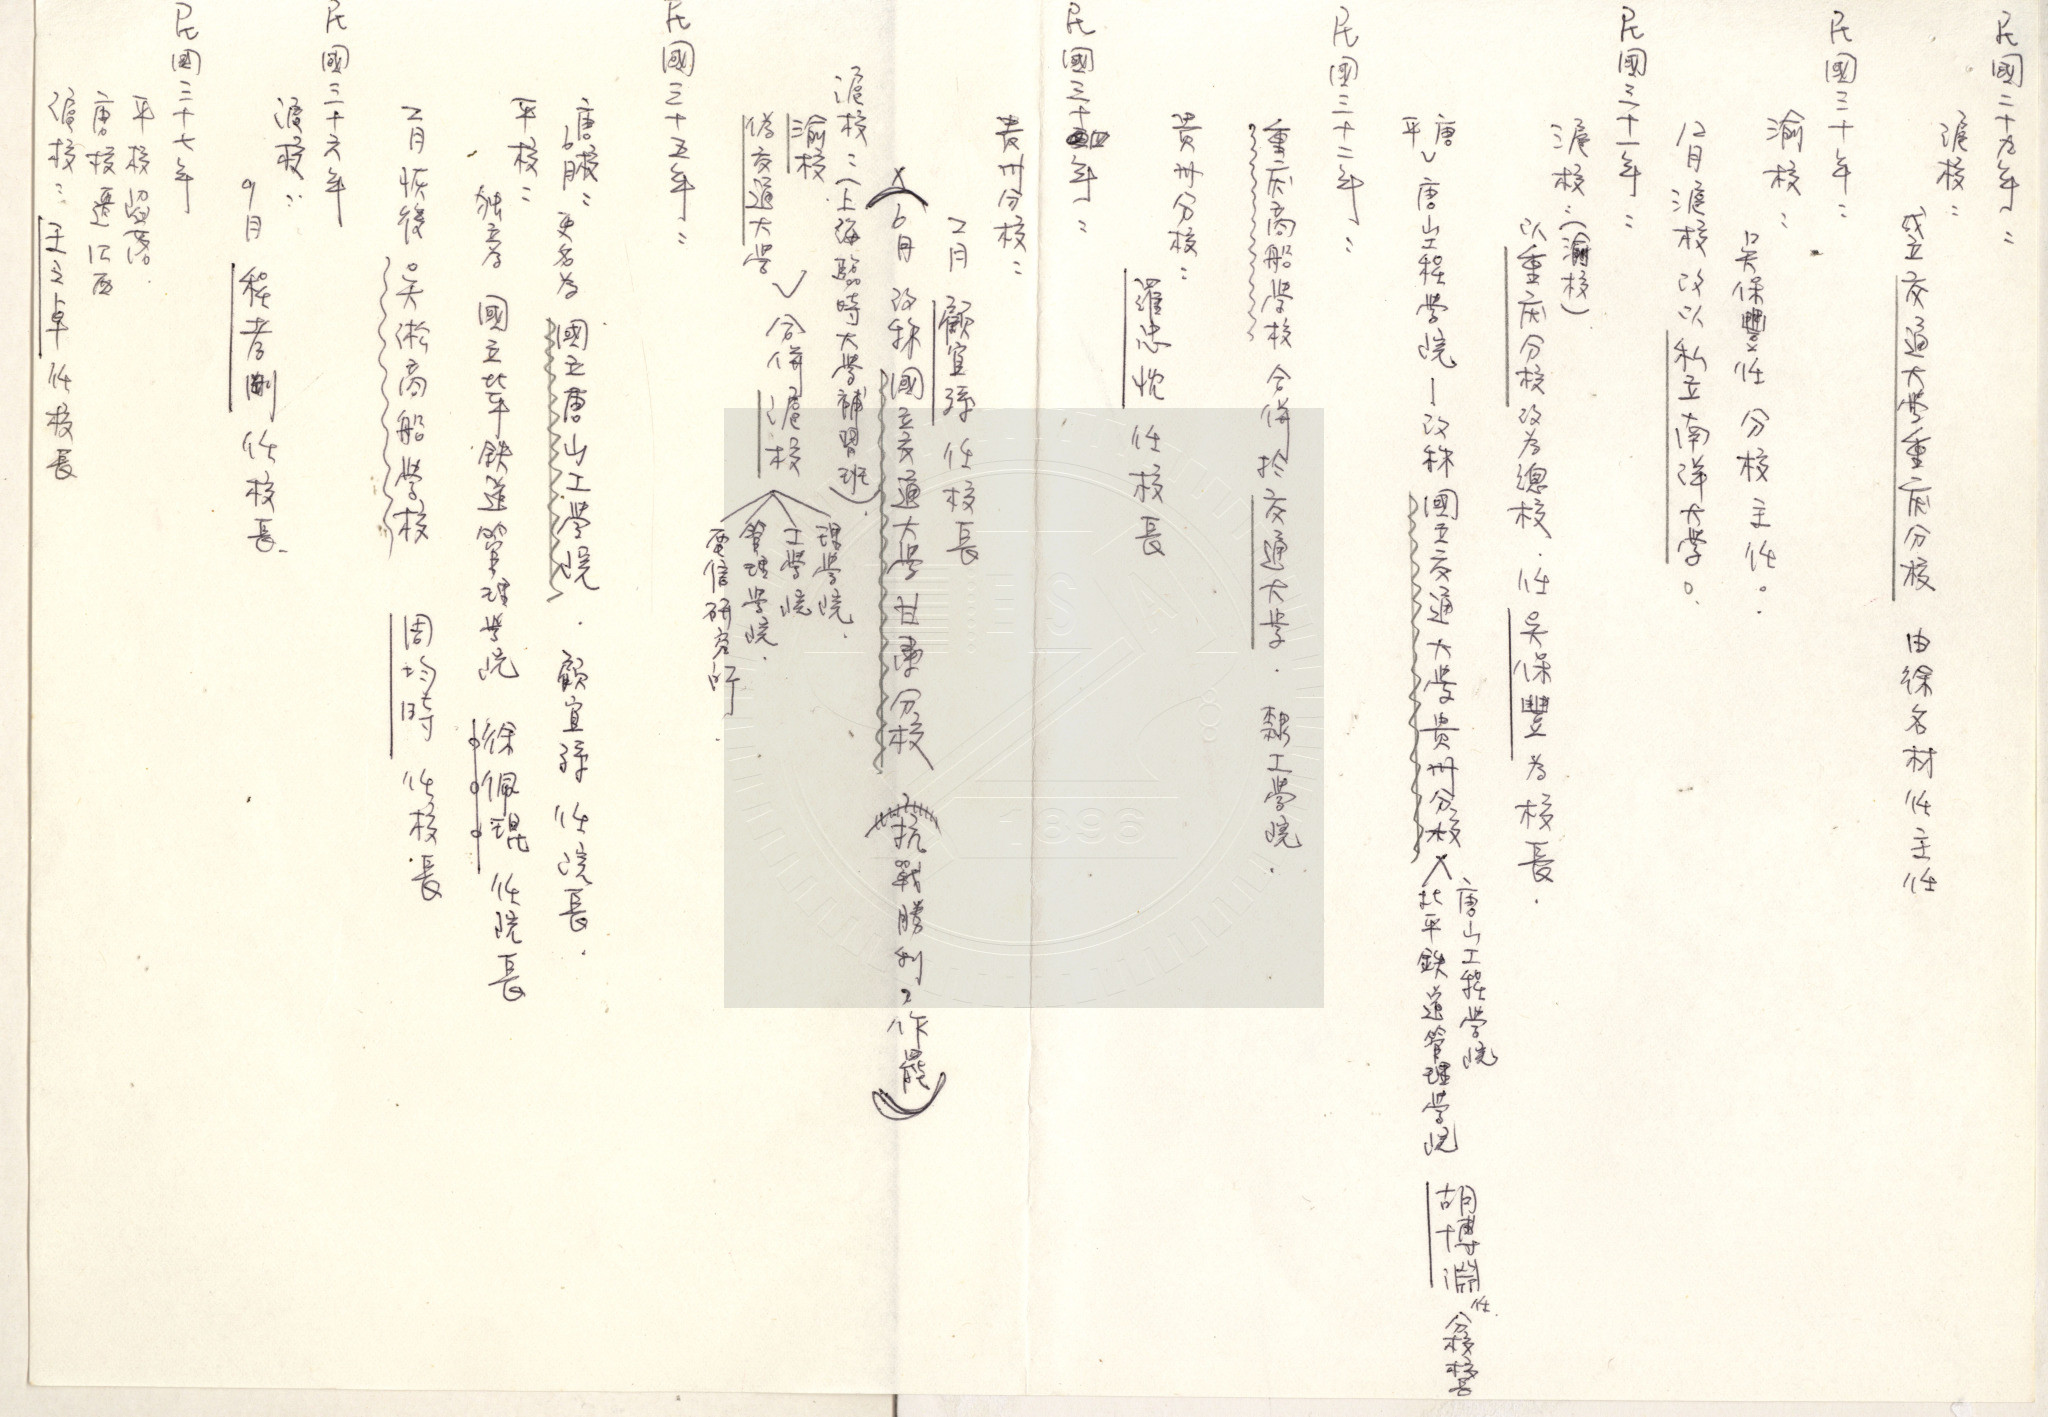 民國二十九年：
滬校：
成立交通大學重慶分校 由徐名材任主任
民國三十年：
渝校：
吳保豐任分校主任。
12月滬校改以私立南洋大學。
民國三十一年：
滬校：（渝校）
以重慶分校改為總校．任吳保豐為校長．
唐
平 唐山工程學院－改稱國立交通大學貴州分校
唐山工程學院
北平鉄道管理學院
胡博淵任分校校長
民國三十二年：
重慶商船學校 合併於交通大學．隸工學院．
貴州分校：
羅忠忱任校長
民國三十四年：
貴州分校：
2月 顧宜孫任校長
6月 改稱國立交通大學甘肅分校 （抗戰勝利2作罷）
滬校：（上海臨時大學補習班）
渝校
偽交通大學
合併滬校
理學院．
工學院
管理學院．
電信研究所．
民國三十五年：
唐校：
6月 更名為 國立唐山工學院．顧宜孫任院長．
平校：
独立為 國立北平鉄道管理學院 徐佩琨任院長
2月恢復吳淞商船學校 周均時 任校長
民國三十六年
滬校：
9月 程孝剛 任校長．
民國三十七年
平校留落．
唐校遷江西
滬校：王之卓任校長